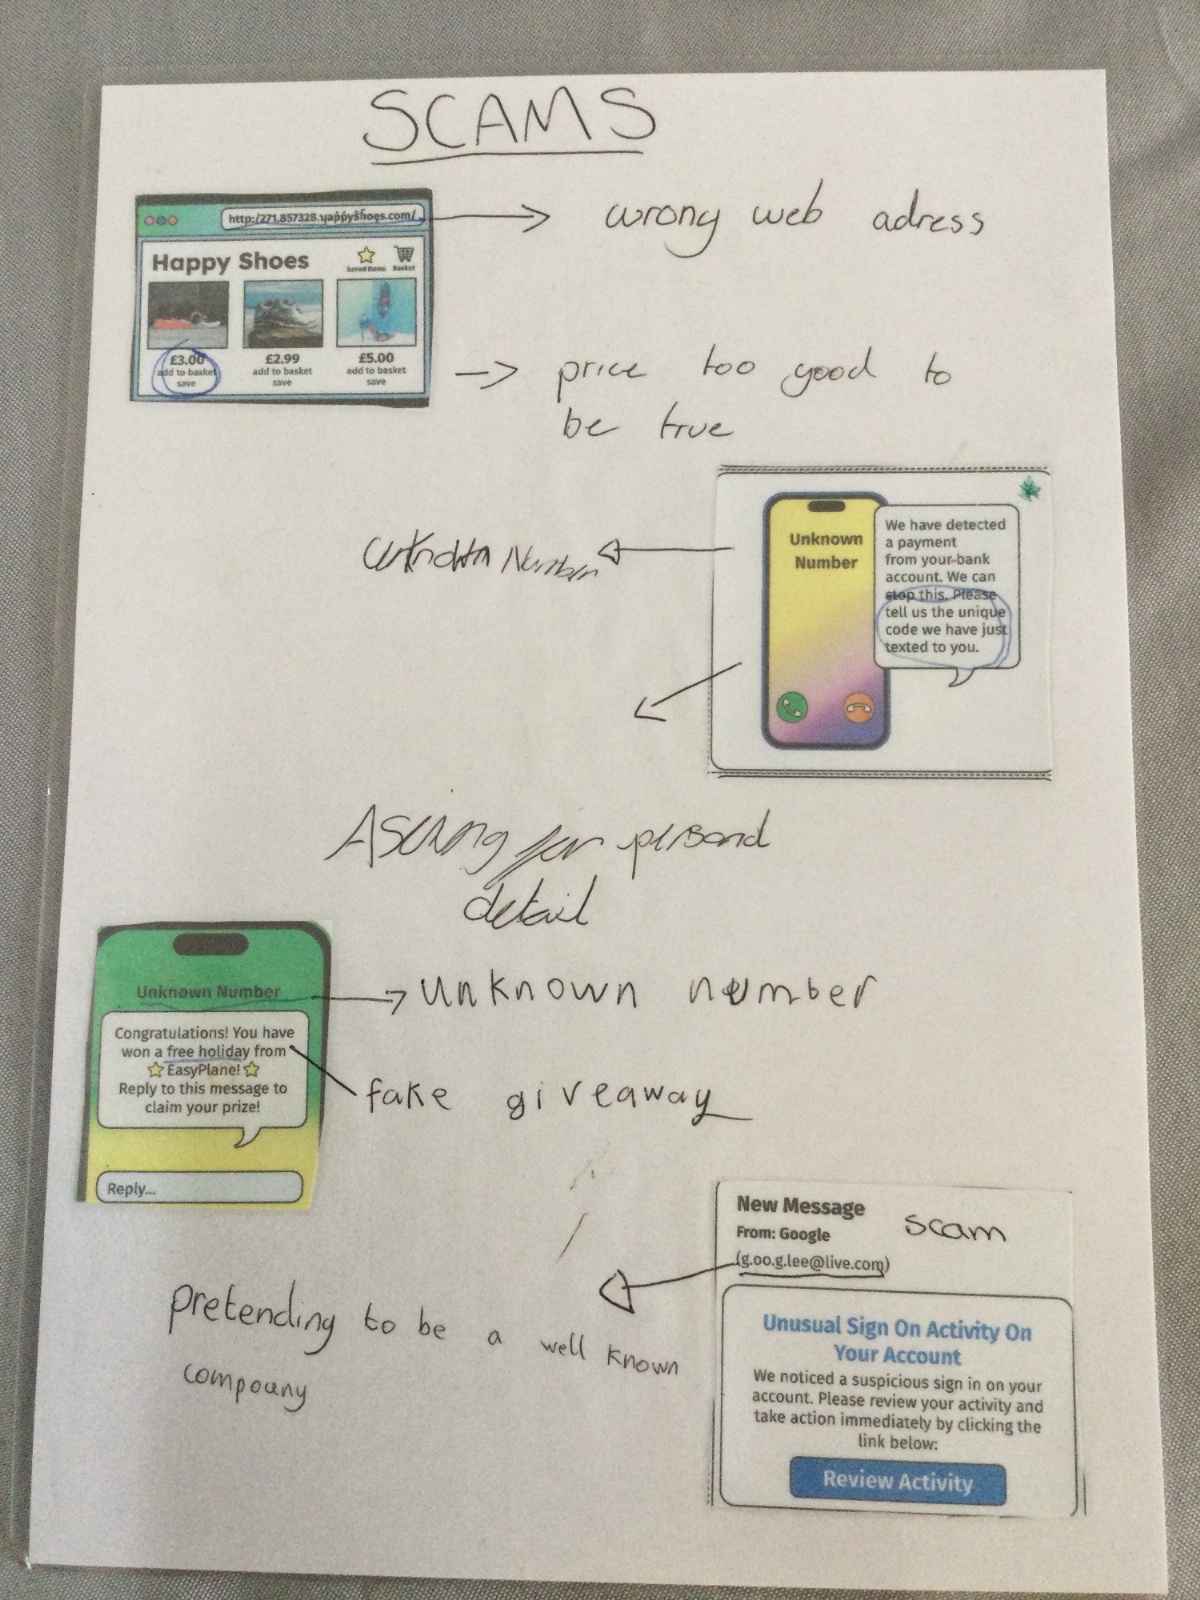 SCAMS
http:/271.857328.yappyshoes.com/
wrong web adress
Happy Shoes
Saved Items
Basket
£3.00
add to basket
save
£2.99
add to basket
save
£5.00
add to basket
save
price too good to
be true
Unknown
Number
We have detected
a payment
from your bank
account. We can
stop this. Please
tell us the unique
code we have just
texted to you.
unknown Number
Asking for personal
detail
Unknown Number
unknown number
Congratulations! You have
won a free holiday from
EasyPlane!
Reply to this message to
claim your prize!
fake giveaway
Reply...
New Message
scam
From: Google
(g.oo.g.lee@live.com)
pretending to be a well known
company
Unusual Sign On Activity On
Your Account
We noticed a suspicious sign in on your
account. Please review your activity and
take action immediately by clicking the
link below:
Review Activity